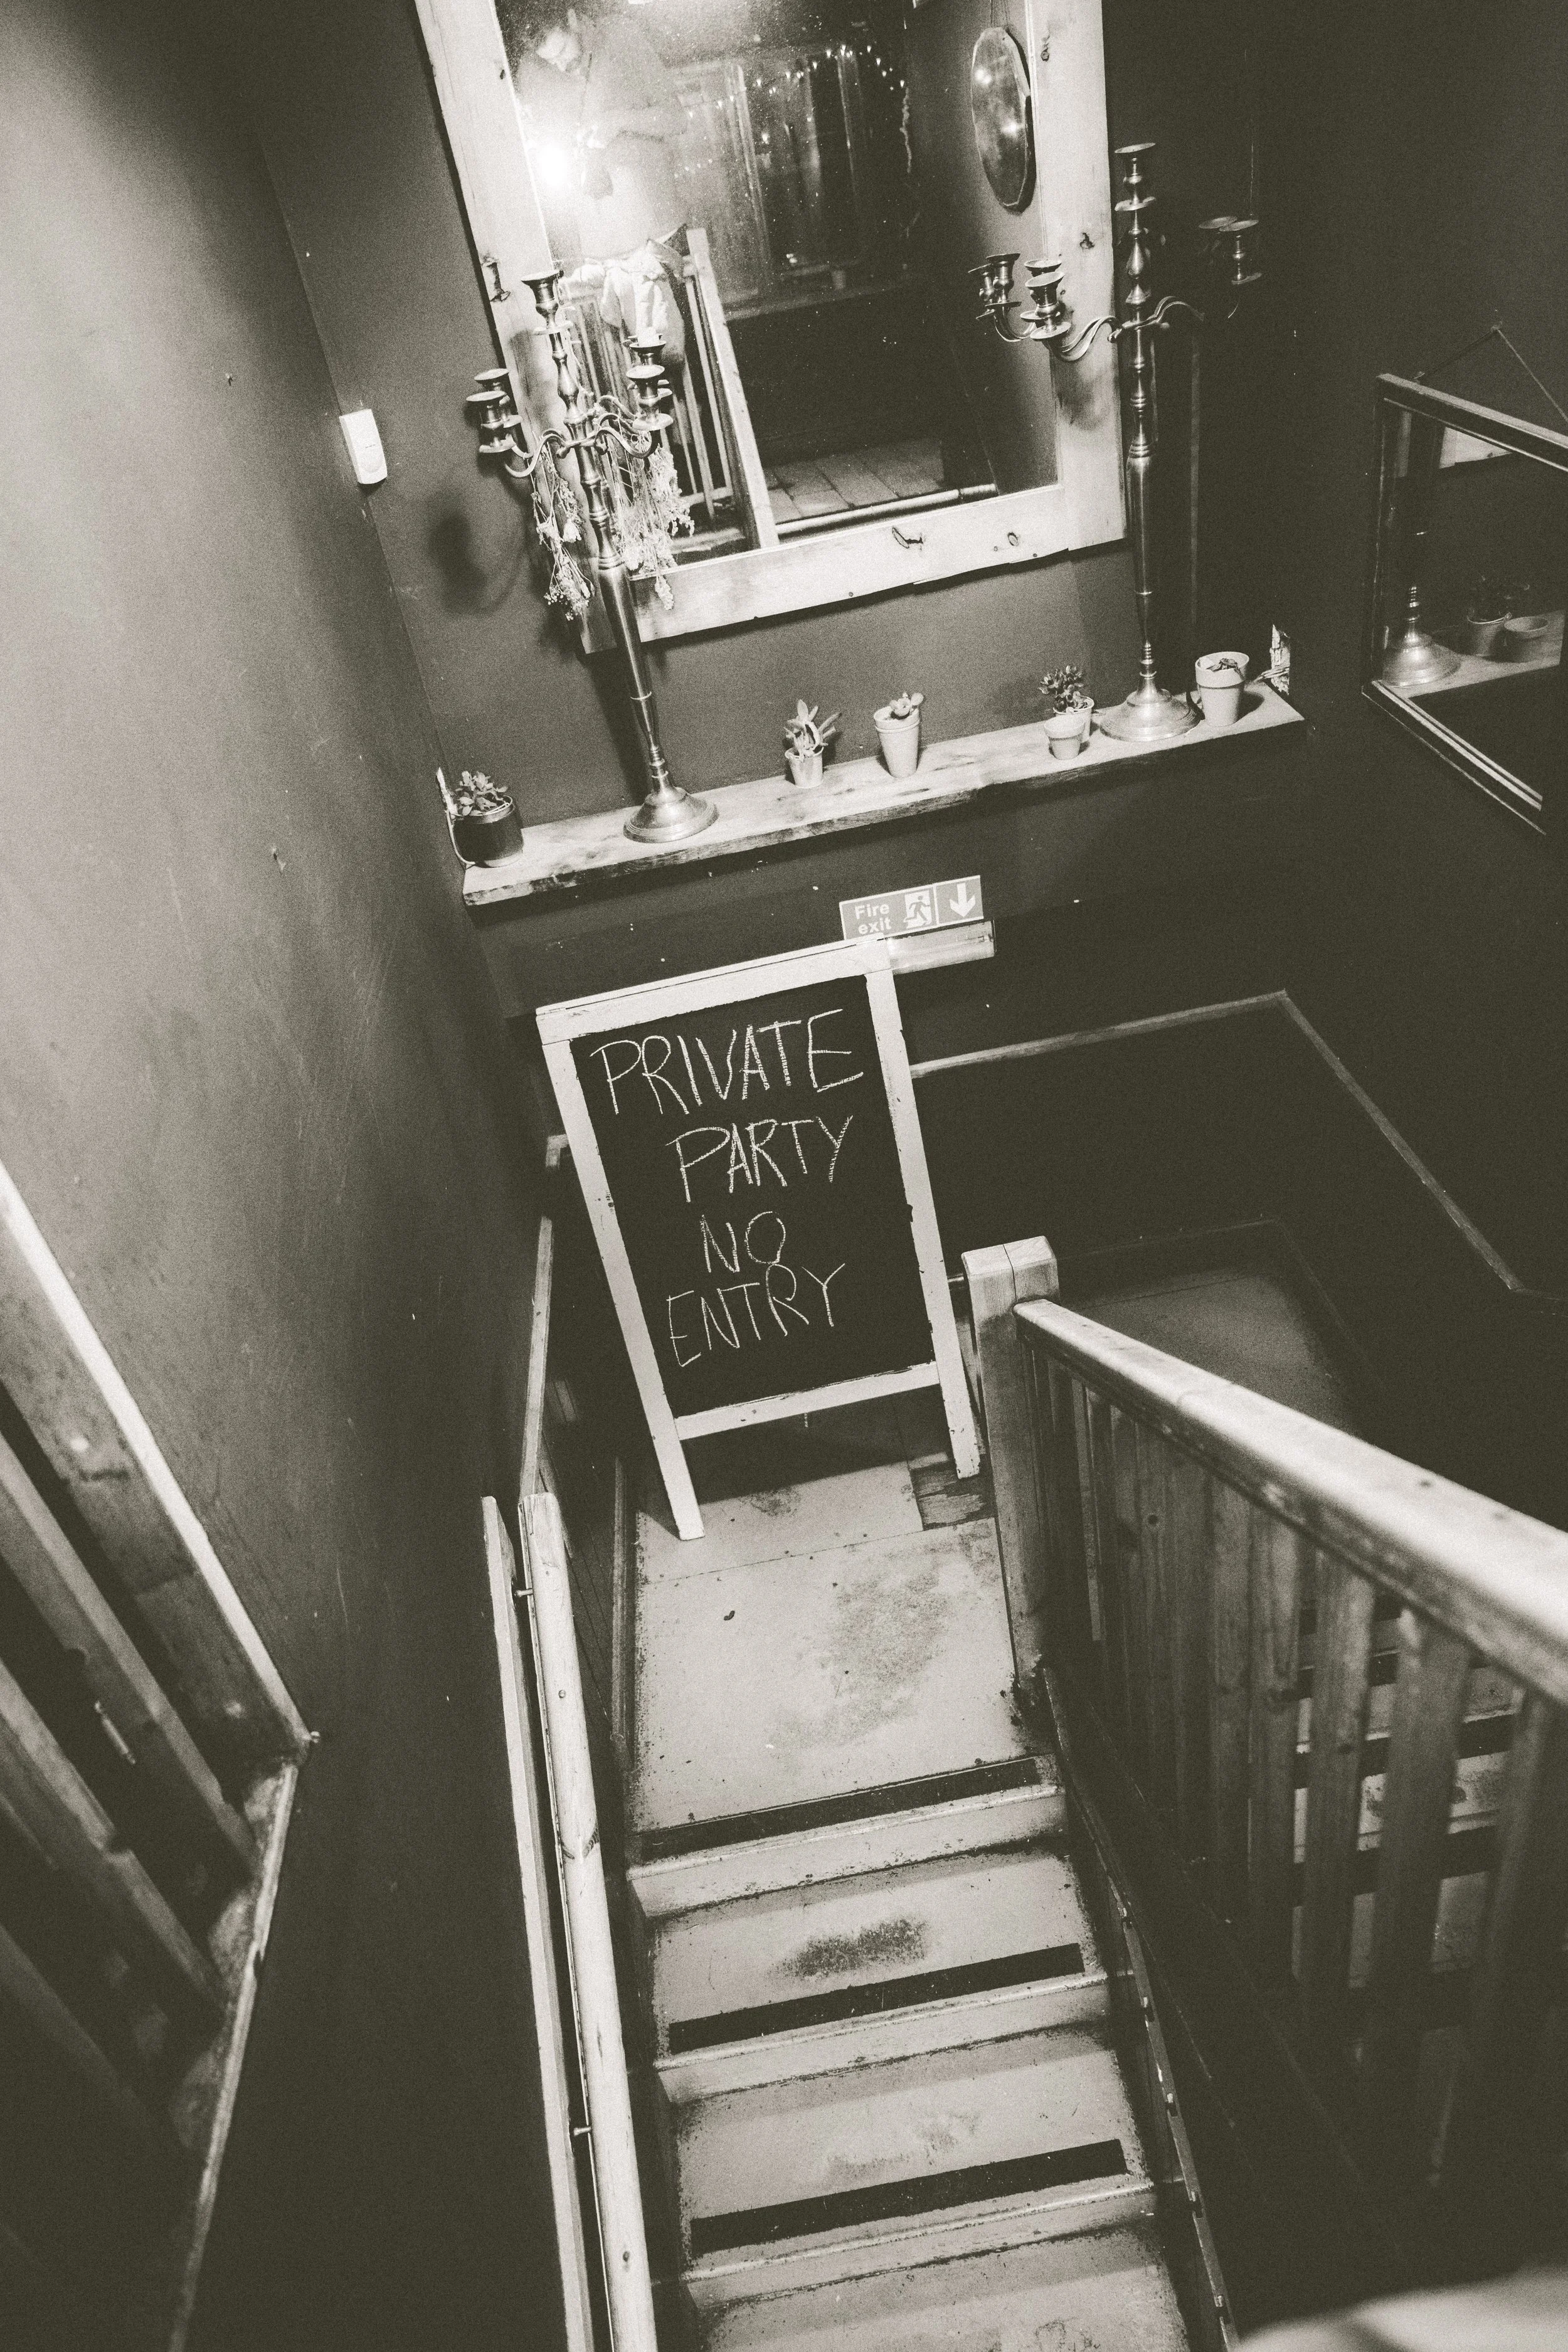 Fire
exit
PRIVATE
PARTY
NO
ENTRY